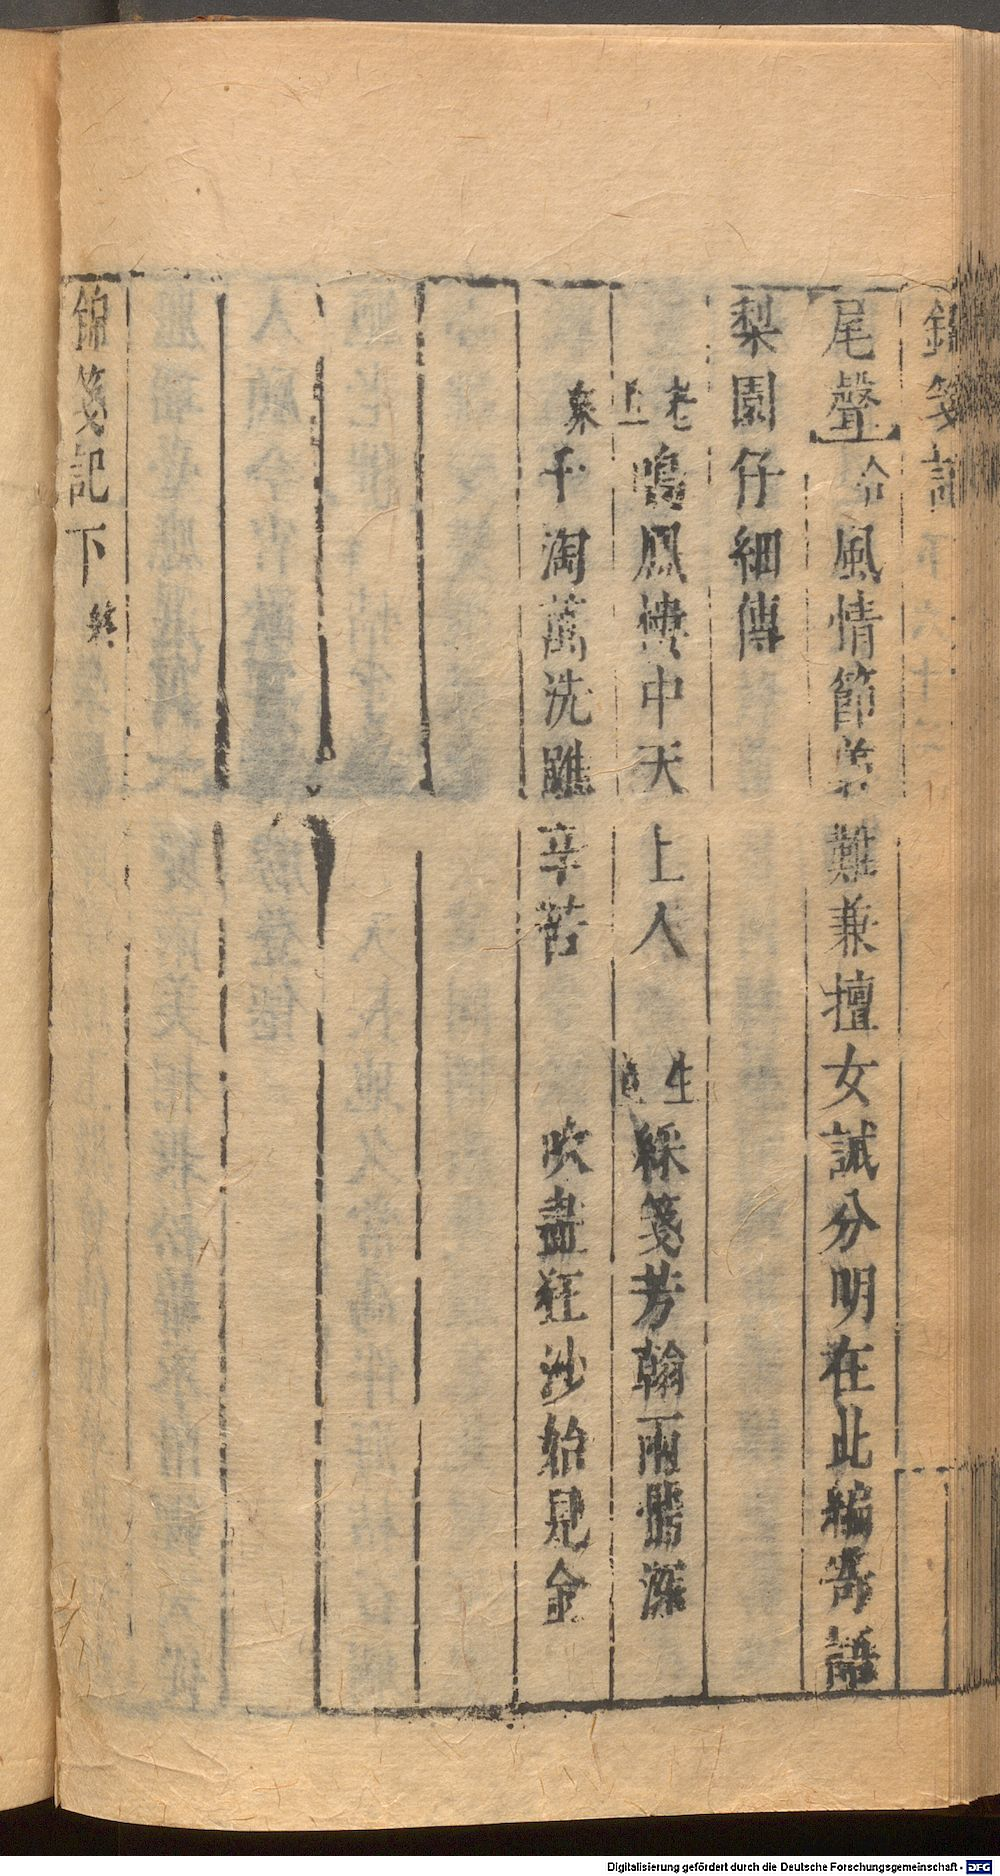 錦箋記
尾聲】合風情節義難兼擅女誡分明在此編寄語
梨園仔細傳
老旦鳴鳳樓中天上人 生旦綵箋芳翰兩深
衆千淘萬洗雖辛苦 吹盡狂沙始見金
錦箋記下終
Digitalisierung gefördert durch die Deutsche Forschungsgemeinschaft - DFG